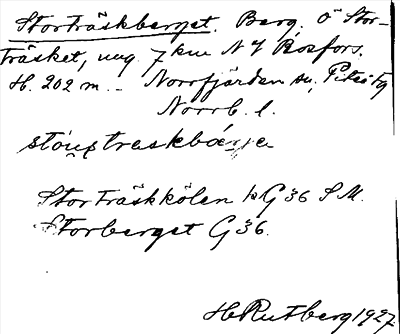 Storträskberget. Berg. Ö Stor-
träsket, ung. 7 km N Y Rosfors.
H. 202 m. - Norrfjärden sn, Piteå tg
Norrb. l.
Storträskkölen kG 36 S.M.
Storberget G 36.
H Rutberg 1927.